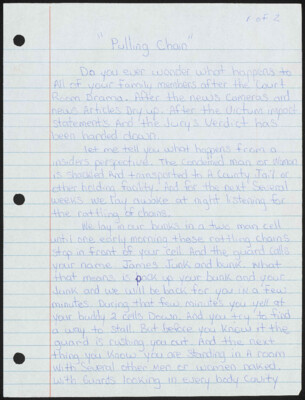 1 of 2
"Pulling Chain"
Do you ever wonder what happens to
All of your family members after the Court
Room Drama. After the news Cameras and
news Articles Dry up. After the Victim impact
statements And the Jury's Verdict has
been handed down.
Let me tell you what happens from a
insiders perspective. The Condemed man or woman
is shackled And transported to A County Jail or
other holding facility. And for the next Several
weeks we lay awake at night listening for
the rattling of chains.
We lay in our bunks in a two man cell
until one early morning these rattling chains
stop in front of your cell. And the guard calls
your name. James Junk and bunk. What
that means is pack up your bunk and your
Junk and we will be back for you in a few
minutes. During that few minutes you yell at
your buddy 2 cells Down. And you try to find
a way to stall. But before you know it the
guard is rushing you out. And the next
thing you know you are standing in A room
with Several other men or women naked.
with Guards looking in every body Cavity